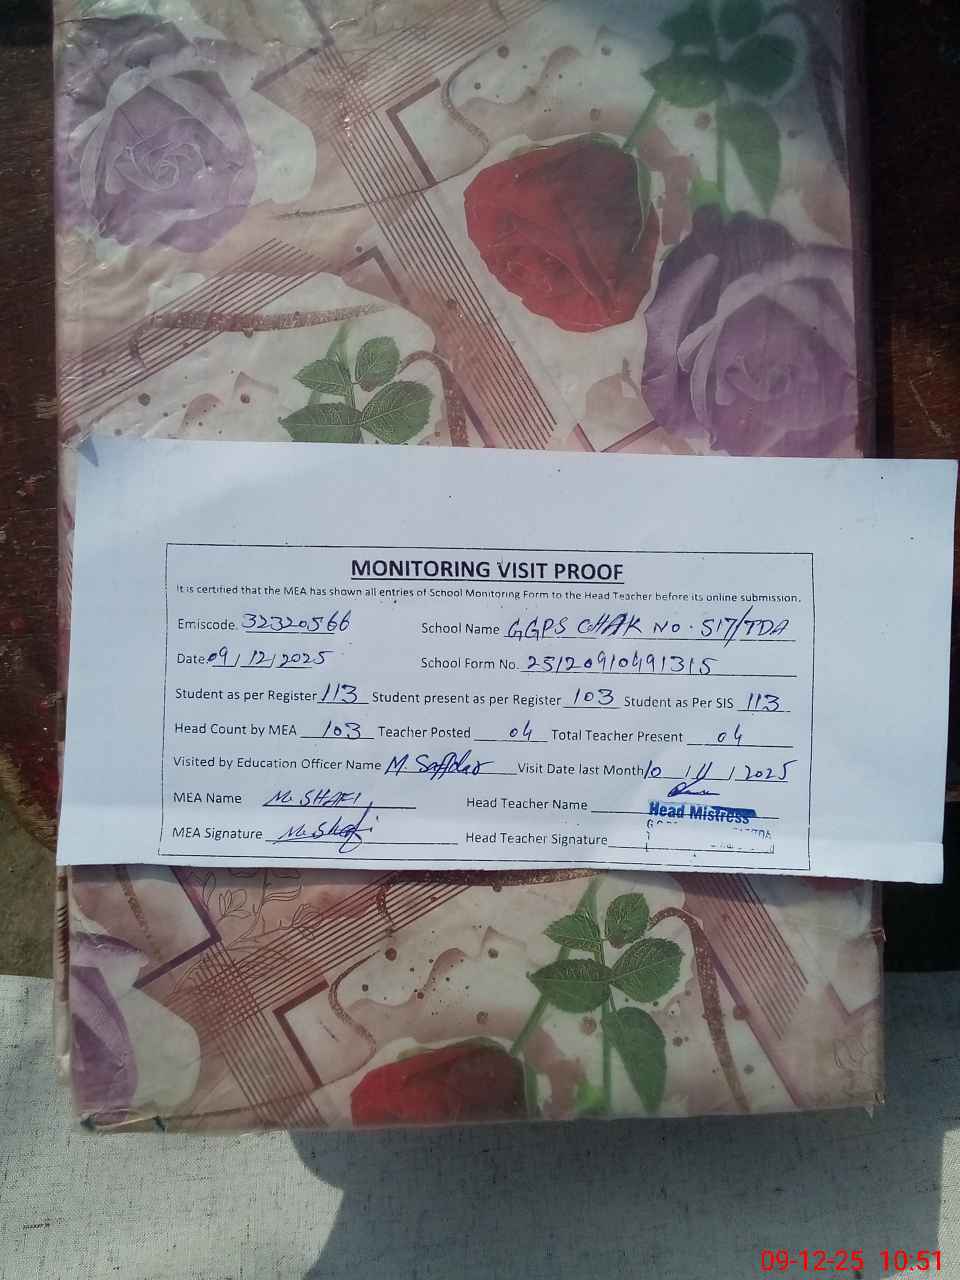 MONITORING VISIT PROOF
It is certified that the MEA has shown all entries of School Monitoring Form to the Head Teacher before its online submission.
Emiscode. 32320566 School Name GGPS CHAK NO. 517/TDA
Date. 09/12/2025 School Form No. 25120910491315
Student as per Register 113 Student present as per Register 103 Student as Per SIS 113
Head Count by MEA 103 Teacher Posted 04 Total Teacher Present 04
Visited by Education Officer Name M. Safdar Visit Date last Month 10/11/2025
MEA Name M. SHAFI Head Teacher Name
Head Mistress
MEA Signature M. Shafi Head Teacher Signature
09-12-25 10:51